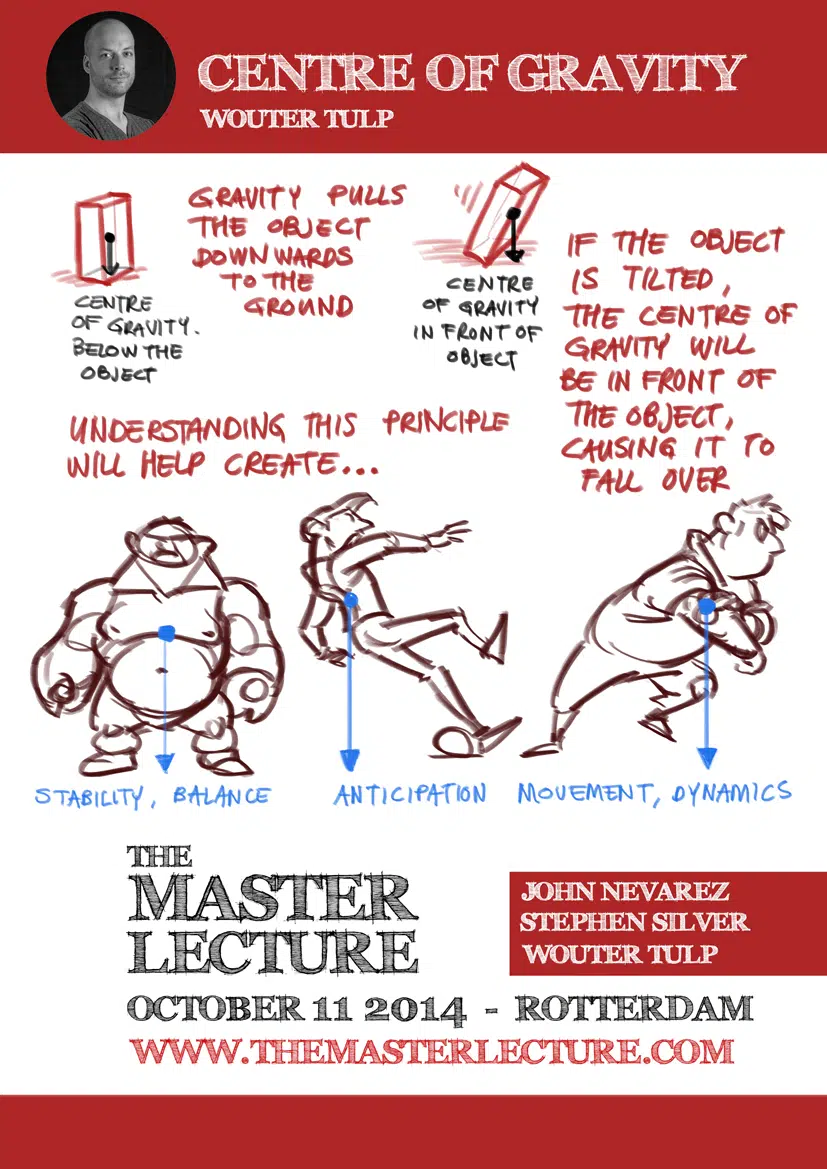 CENTRE OF GRAVITY
WOUTER TULP
GRAVITY PULLS
THE OBJECT
DOWNWARDS
TO THE
GROUND
CENTRE
OF GRAVITY.
BELOW THE
OBJECT
CENTRE
OF GRAVITY
IN FRONT OF
OBJECT
IF THE OBJECT
IS TILTED,
THE CENTRE OF
GRAVITY WILL
BE IN FRONT OF
THE OBJECT,
CAUSING IT TO
FALL OVER
UNDERSTANDING THIS PRINCIPLE
WILL HELP CREATE...
STABILITY, BALANCE
ANTICIPATION
MOVEMENT, DYNAMICS
THE
MASTER
LECTURE
JOHN NEVAREZ
STEPHEN SILVER
WOUTER TULP
OCTOBER 11 2014 - ROTTERDAM
WWW.THEMASTERLECTURE.COM